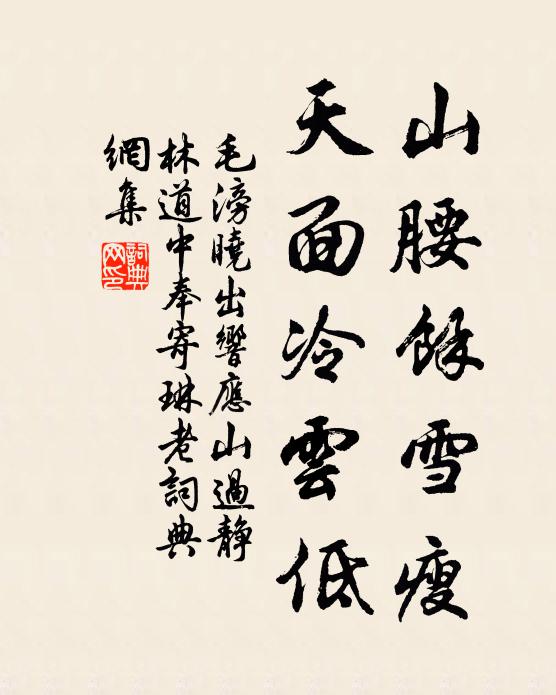 山腰餘雪瘦
天面冷雲低
毛滂曉出響應山過靜
林道中奉寄琳老詞典
網集
詞典
網印